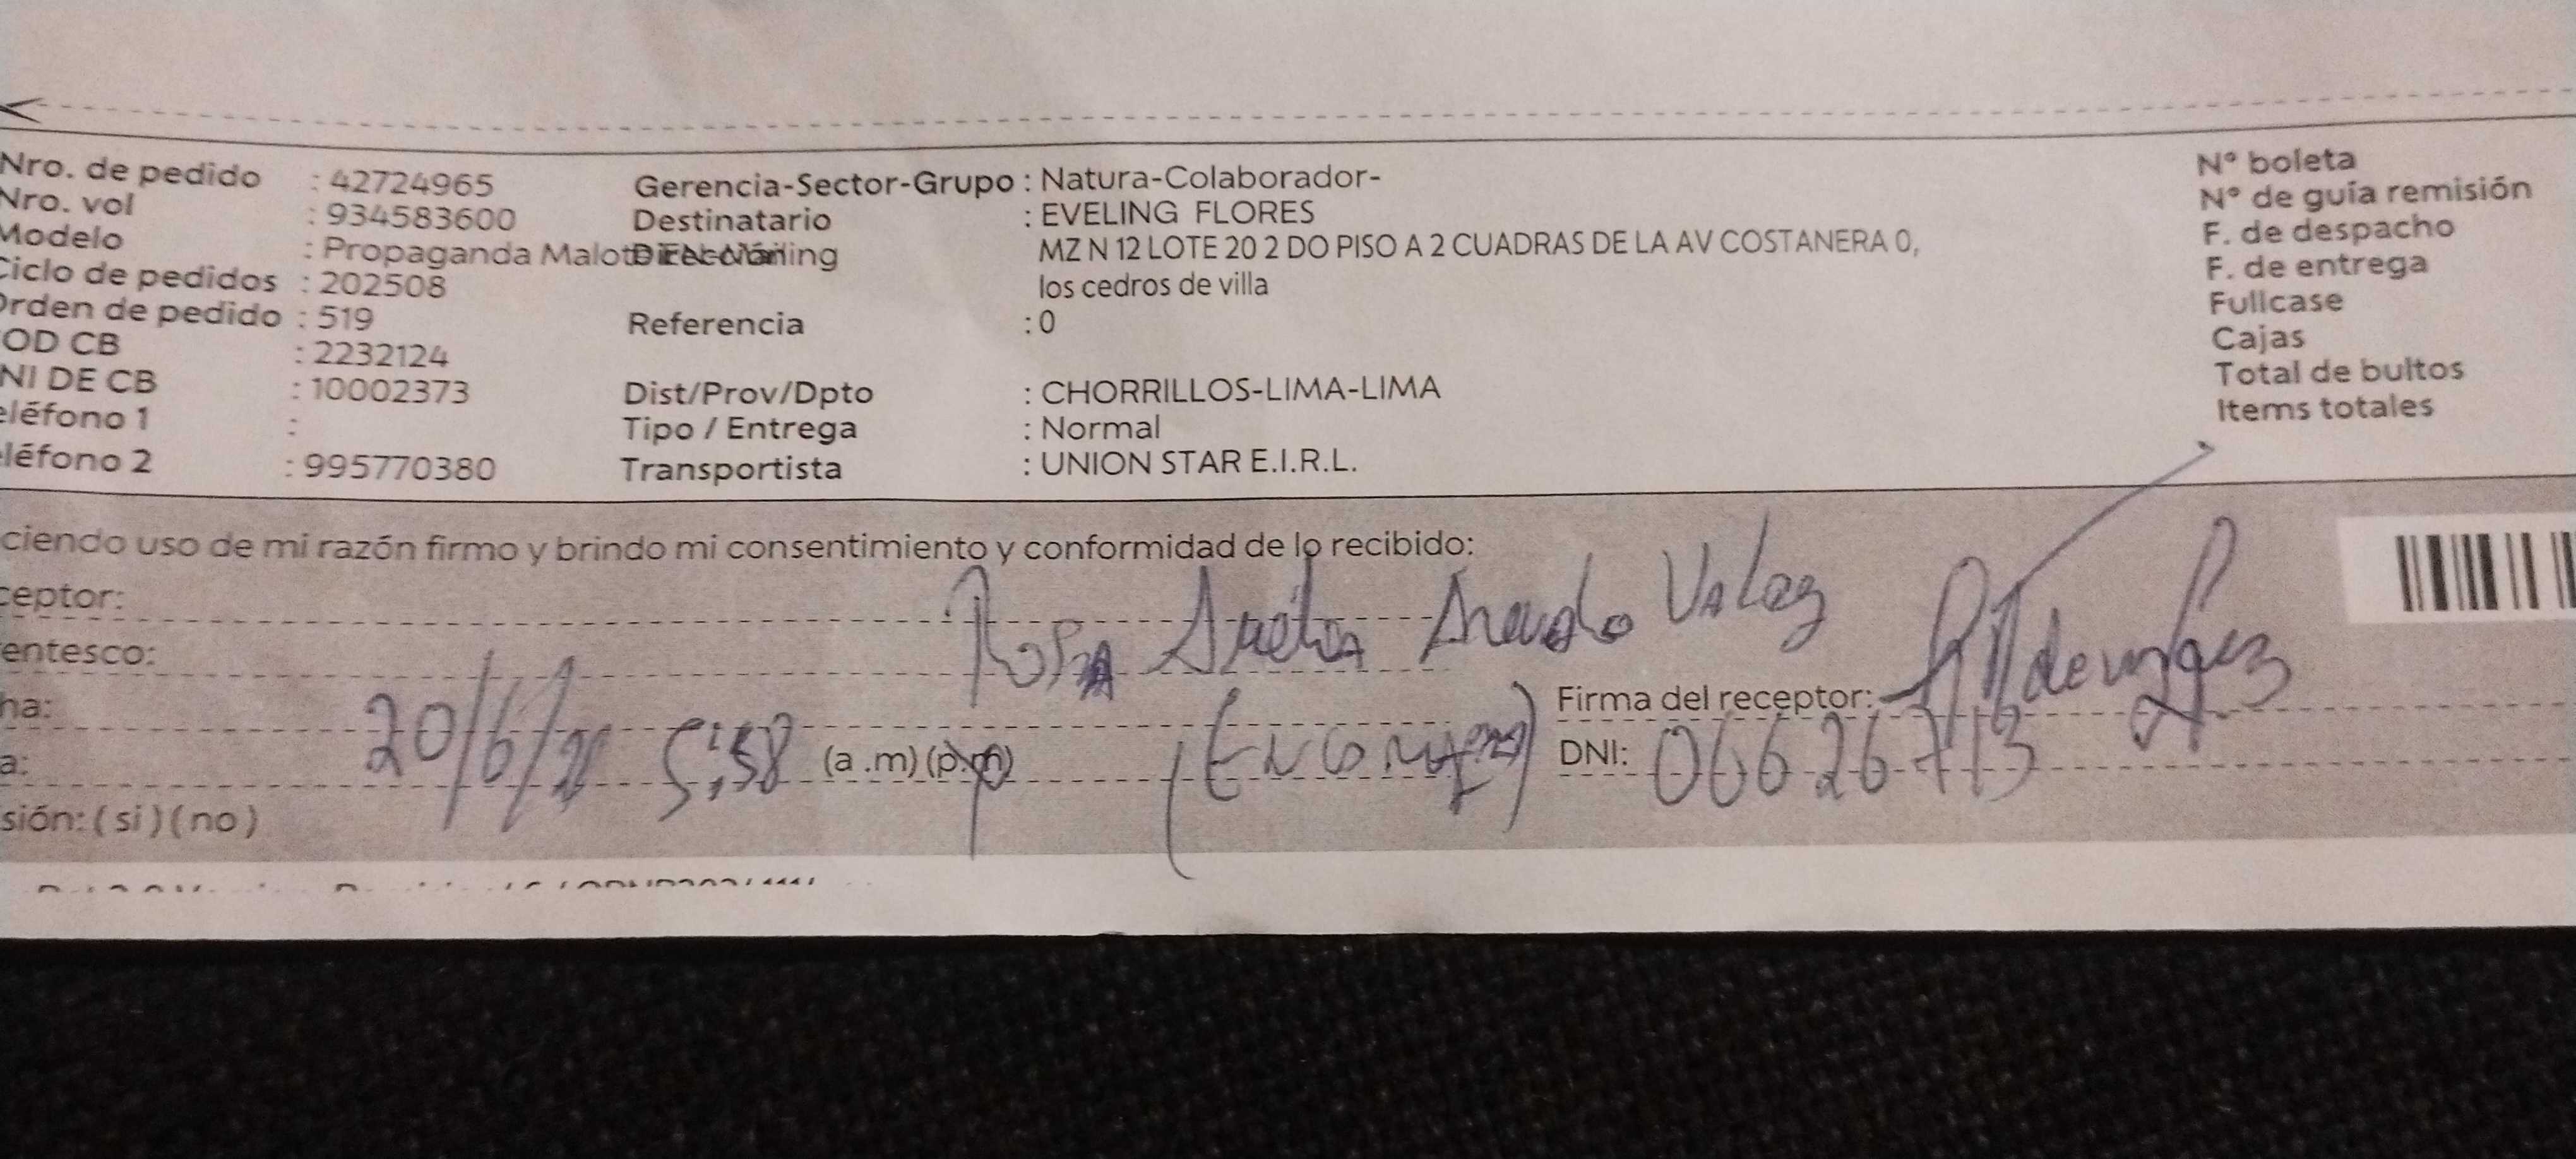 Nro. de pedido : 42724965 Gerencia-Sector-Grupo : Natura-Colaborador- N° boleta
Nro. vol : 934583600 Destinatario : EVELING FLORES N° de guía remisión
Modelo : Propaganda Dirección MZ N 12 LOTE 20 2 DO PISO A 2 CUADRAS DE LA AV COSTANERA 0, F. de despacho
Ciclo de pedidos : 202508 los cedros de villa F. de entrega
Orden de pedido : 519 Referencia : 0 Fullcase
OD CB : 2232124 Cajas
NI DE CB : 10002373 Dist/Prov/Dpto : CHORRILLOS-LIMA-LIMA Total de bultos
eléfono 1 : Tipo / Entrega : Normal Items totales
léfono 2 : 995770380 Transportista : UNION STAR E.I.R.L.
ciendo uso de mi razón firmo y brindo mi consentimiento y conformidad de lo recibido:
ceptor: Rosa
entesco:
ha: 20/6/ Firma del receptor:
a: 5:58 (a .m) (p.m) DNI: 06626713
sión: ( si ) ( no )